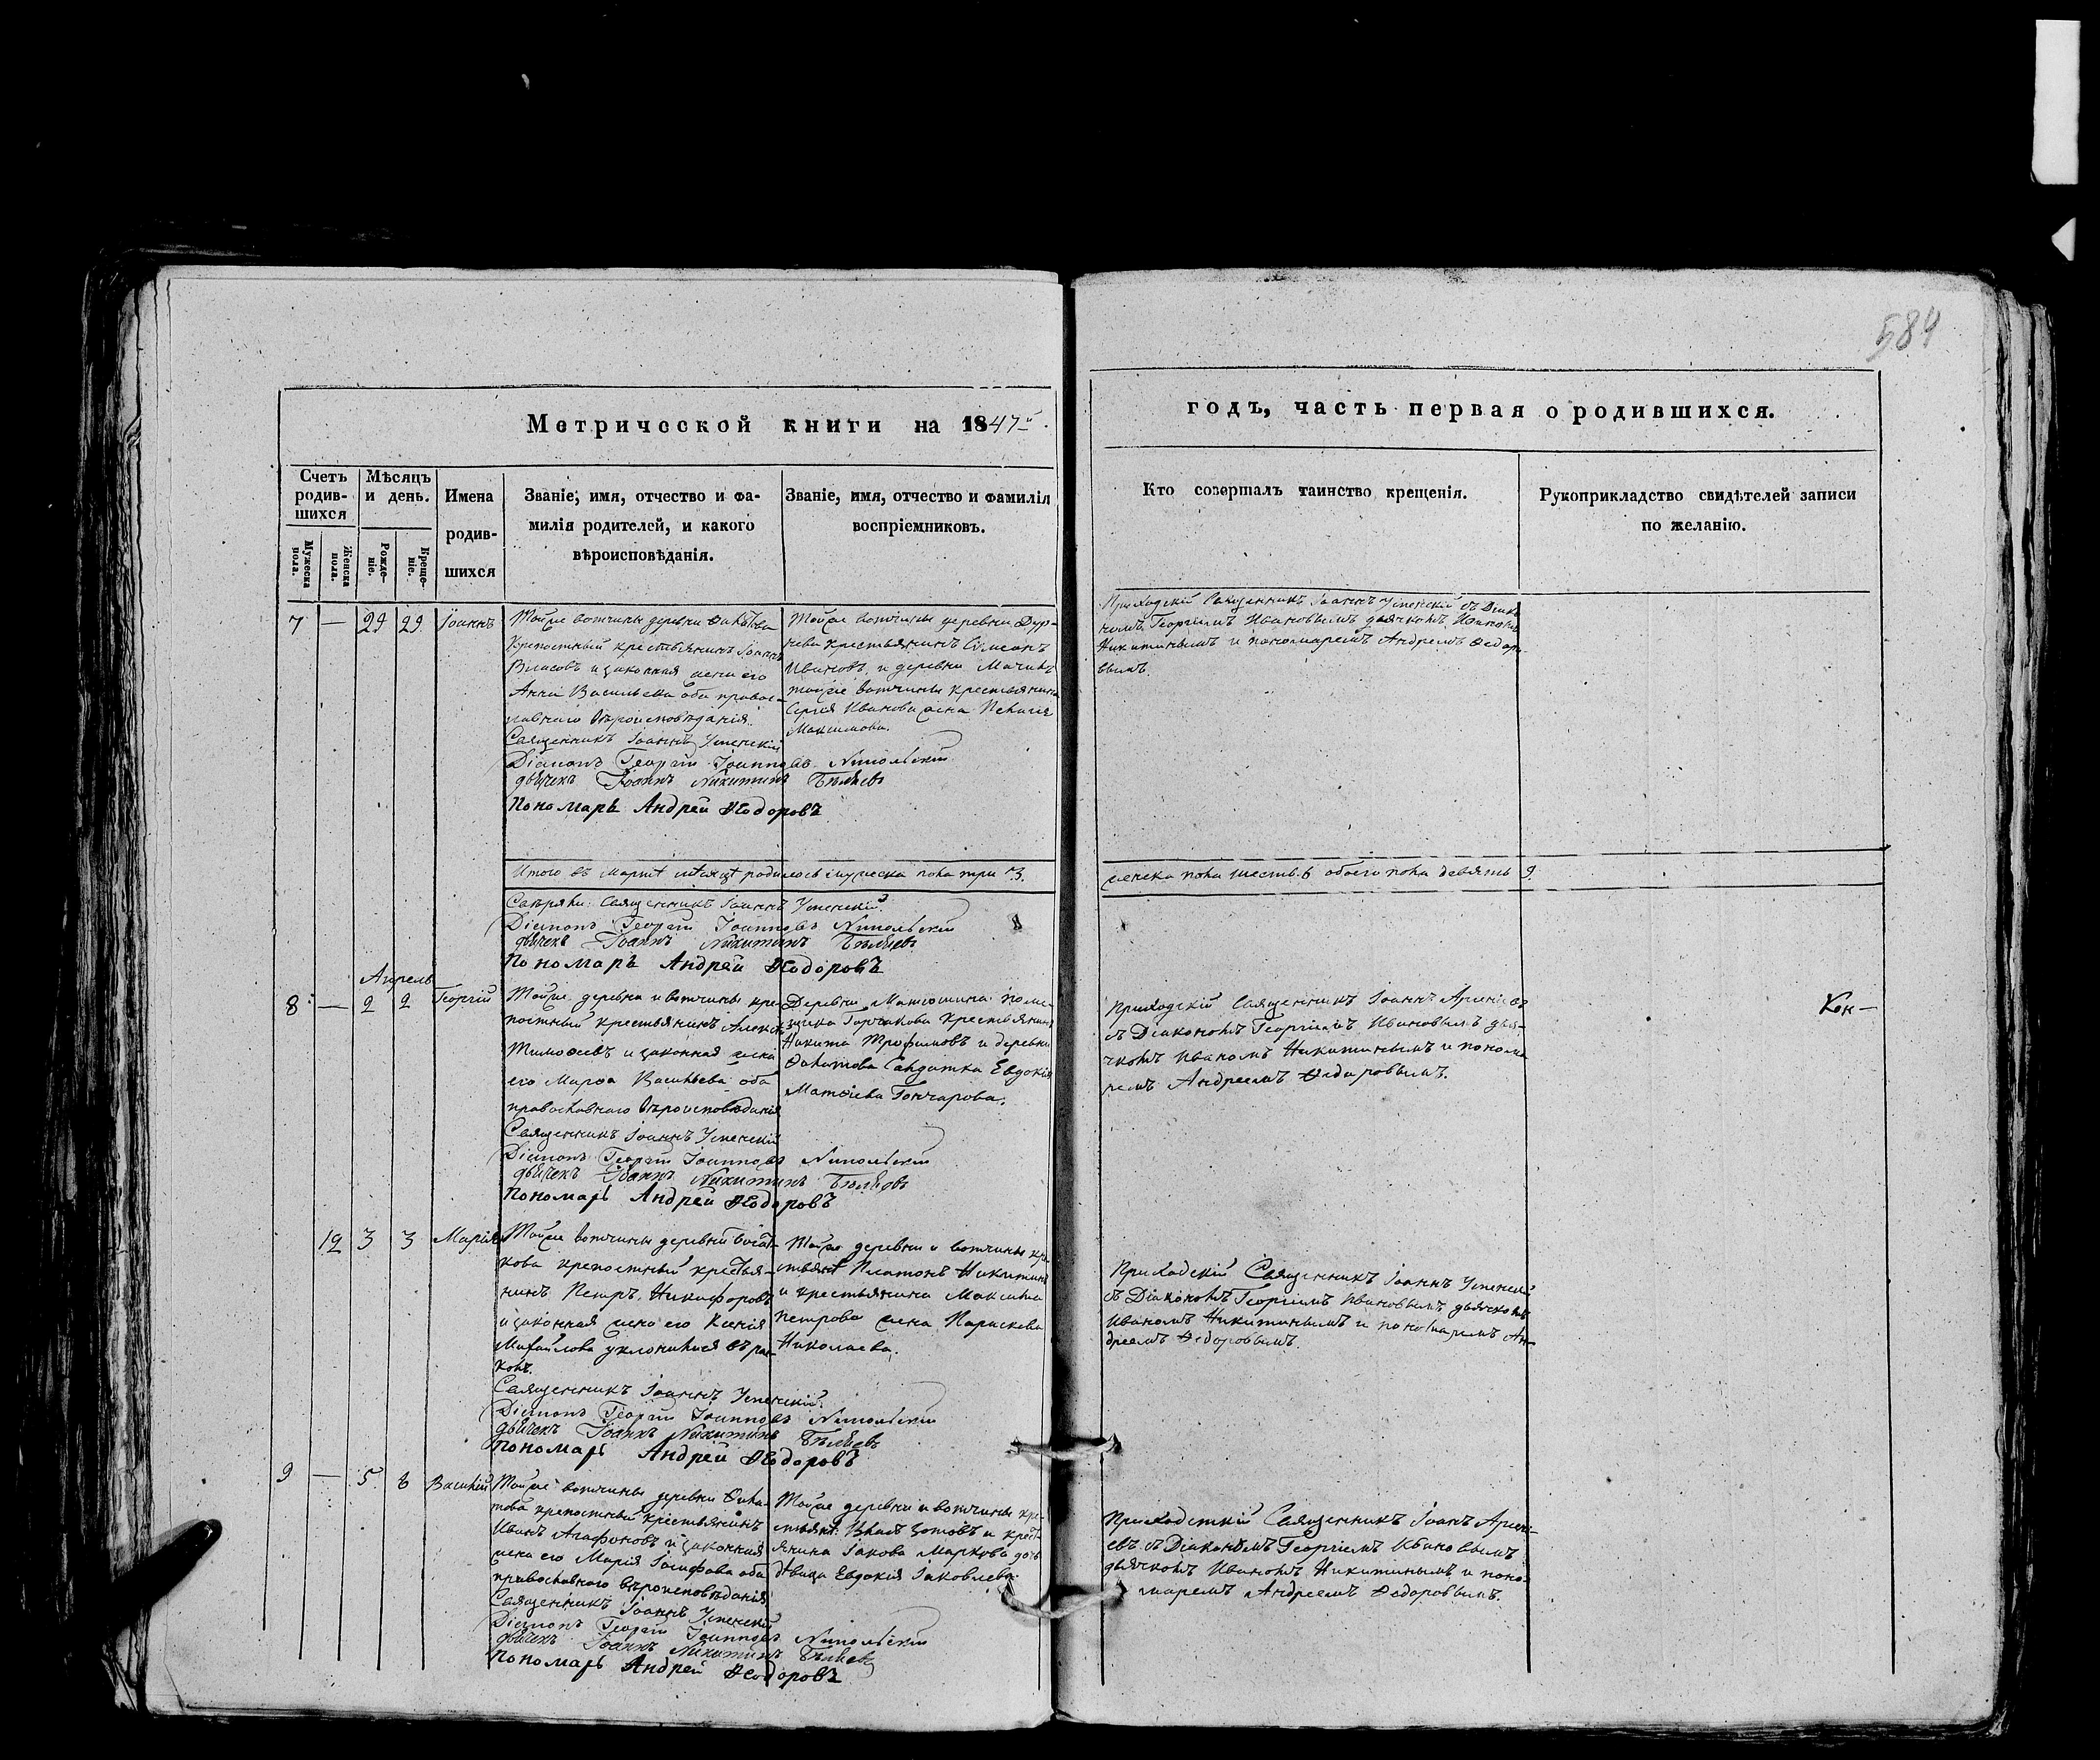 584
Метрической книги на 1847й
годъ, часть первая о родившихся.
Счетъ родив-шихся
Мужеска пола.
Женска пола.
Мѣсяцъ и день.
Рожде-ніе.
Креще-ніе.
Имена родив-шихся
Званіе, имя, отчество и фа-
милія родителей, и какого
вѣроисповѣданія.
Званіе, имя, отчество и фамилія
воспріемниковъ.
Кто совершалъ таинство крещенія.
Рукоприкладство свидѣтелей записи
по желанію.
7 — 29 29 Іоаннъ
Тойже вотчины деревни
Крепостный крестьянинъ Іоаннъ
Власовъ и законная жена его
Анна Васильева оба правос-
лавнаго вѣроисповѣданія.
Священникъ Іоаннъ Успенскій
Діаконъ Георгій Іоанновъ Никольскій
дьячекъ Іоаннъ Никитинъ Бѣляевъ
Пономарь Андрей Ѳеодоровъ
Тойже вотчины деревни Дур-
нева крестьянинъ Симеонъ
Ивановъ, и деревни
тойже вотчины крестьянина
Сергія Иванова жена Пелагія
Максимова.
Приходскій Священникъ Іоаннъ Успенскій съ Діако-
номъ Георгіемъ Ивановымъ дьячкомъ Иваномъ
Никитинымъ и пономаремъ Андреемъ Ѳедоро-
вымъ.
Итого въ Мартѣ мѣсяцѣ родилось мужеска пола три 3.
женска пола шесть 6 обоего пола девять 9
Свѣряли: Священникъ Іоаннъ Успенскій
Діаконъ Георгій Іоанновъ Никольскій
дьячекъ Іоаннъ Никитинъ Бѣляевъ
Пономарь Андрей Ѳеодоровъ
Апрель
8 — 2 2 Георгій
Тойже деревни и вотчины кре-
постный крестьянинъ Алексѣй
Тимоѳеевъ и законная жена
его Марѳа Васильева оба
православнаго вѣроисповѣданія
Священникъ Іоаннъ Успенскій
Діаконъ Георгій Іоанновъ Никольскій
дьячекъ Іоаннъ Никитинъ Бѣляевъ
Пономарь Андрей Ѳеодоровъ
Деревни Матюшина поме-
щика Горчакова крестьянинъ
Никита Трофимовъ и деревни
Солдатка Евдокія
Матѳіева Гончарова.
Приходскій Священникъ Іоаннъ Арсеніевъ
съ Діакономъ Георгіемъ Ивановымъ дья-
чкомъ Иваномъ Никитинымъ и понома
ремъ Андреемъ Ѳедоровымъ.
Кон—
12 3 3 Марія
Тойже вотчины деревни Богат-
кова крепостный крестья-
нинъ Петръ Никифоровъ
и законная жена его Ксенія
Михайлова уклонился въ рас-
колъ.
Священникъ Іоаннъ Успенскій
Діаконъ Георгій Іоанновъ Никольскій
дьячекъ Іоаннъ Никитинъ Бѣляевъ
Пономарь Андрей Ѳеодоровъ
Тойже деревни и вотчины кре-
стьянѣ Платонъ Никитинъ
и крестьянина Максима
Петрова жена Параскева
Николаева.
Приходскій Священникъ Іоаннъ Успенскій
съ Діакономъ Георгіемъ Ивановымъ дьячкомъ
Иваномъ Никитинымъ и пономаремъ Ан-
дреемъ Ѳедоровымъ.
9 — 5 6 Василій
Тойже вотчины деревни Фила-
това крепостный крестьянинъ
Иванъ Агафоновъ и законная
жена его Марія Іосифова оба
православнаго вѣроисповѣданія
Священникъ Іоаннъ Успенскій
Діаконъ Георгій Іоанновъ Никольскій
дьячекъ Іоаннъ Никитинъ Бѣляевъ
Пономарь Андрей Ѳеодоровъ
Тойже деревни и вотчины кре-
стьянѣ: Власъ Зотовъ и крест-
янина Іакова Маркова дочь
дѣвица Евдокія Іаковлева.
Приходсткій Священникъ Іоанъ Арсені-
евъ съ Діакономъ Георгіемъ Ивановымъ
дьячкомъ Иваномъ Никитинымъ и поно-
маремъ Андреемъ Ѳедоровымъ.